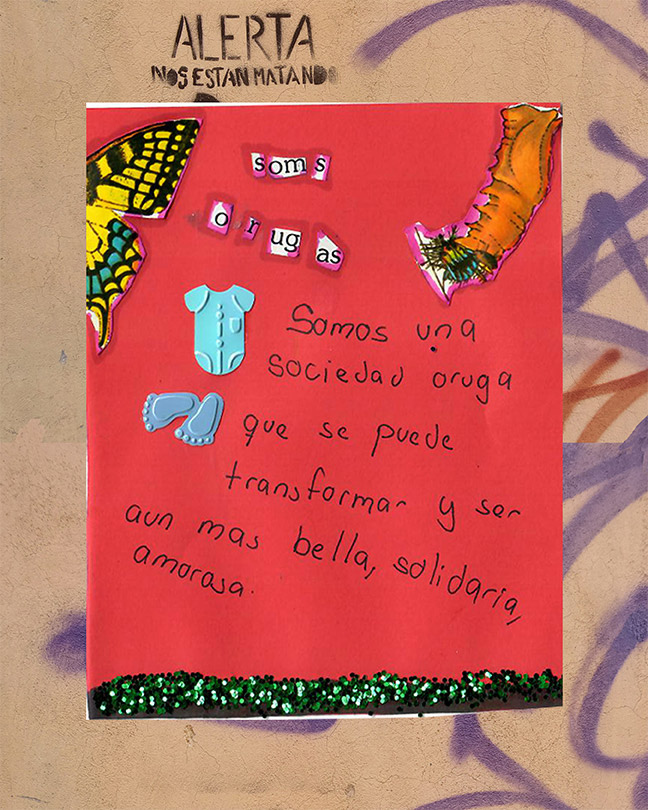 ALERTA
NOS ESTAN MATANDO
soms
orugas
Somos una
sociedad oruga
que se puede
transformar y ser
aun mas bella, solidaria,
amorosa.